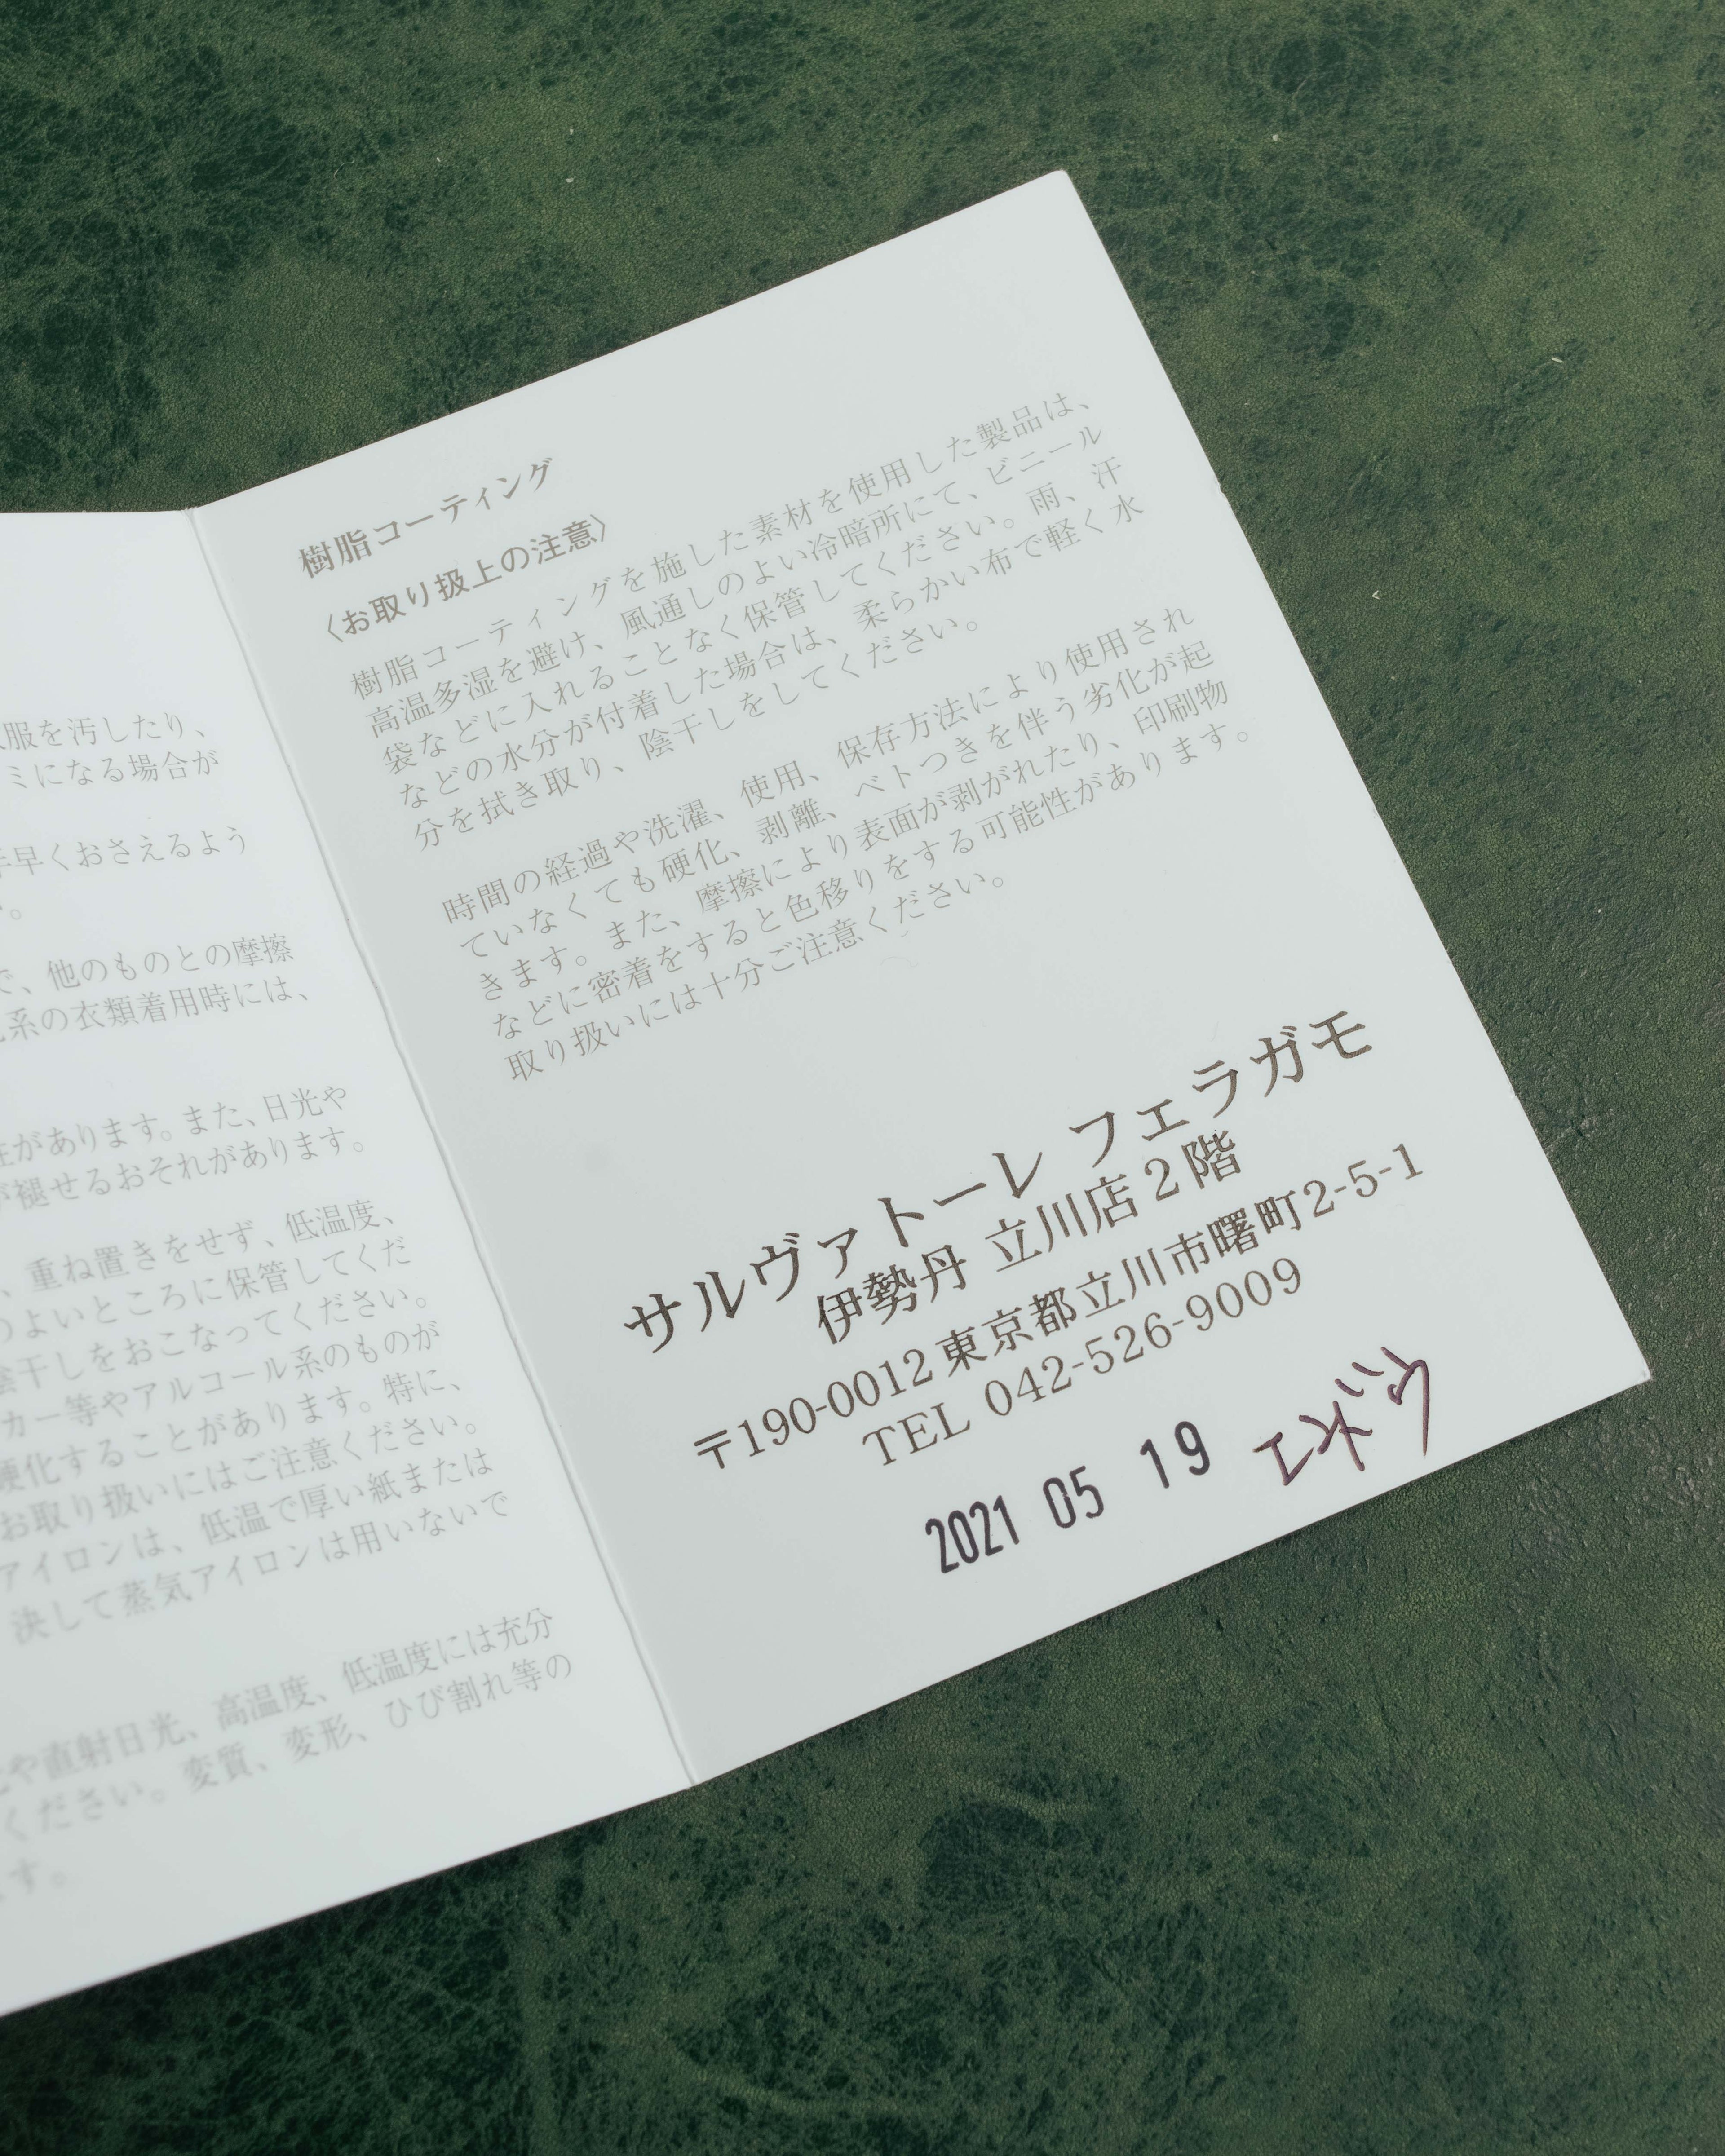 服を汚したり、
ミになる場合が
早くおさえるよう
。
で、他のものとの摩擦
系の衣類着用時には、
があります。また、日光や
褪せるおそれがあります。
、重ね置きをせず、低温度、
のよいところに保管してくだ
陰干しをおこなってください。
カー等やアルコール系のものが
硬化することがあります。特に、
お取り扱いにはご注意ください。
アイロンは、低温で厚い紙または
決して蒸気アイロンは用いないで
や直射日光、高温度、低温度には充分
ください。変質、変形、ひび割れ等の
す。
樹脂コーティング
〈お取り扱上の注意〉
樹脂コーティングを施した素材を使用した製品は、
高温多湿を避け、風通しのよい冷暗所にて、ビニール
袋などに入れることなく保管してください。雨、汗
などの水分が付着した場合は、柔らかい布で軽く水
分を拭き取り、陰干しをしてください。
時間の経過や洗濯、使用、保存方法により使用され
ていなくても硬化、剥離、ベトつきを伴う劣化が起
きます。また、摩擦により表面が剥がれたり、印刷物
などに密着をすると色移りをする可能性があります。
取り扱いには十分ご注意ください。
サルヴァトーレ フェラガモ
伊勢丹 立川店2階
〒190-0012 東京都立川市曙町2-5-1
TEL 042-526-9009
2021 05 19